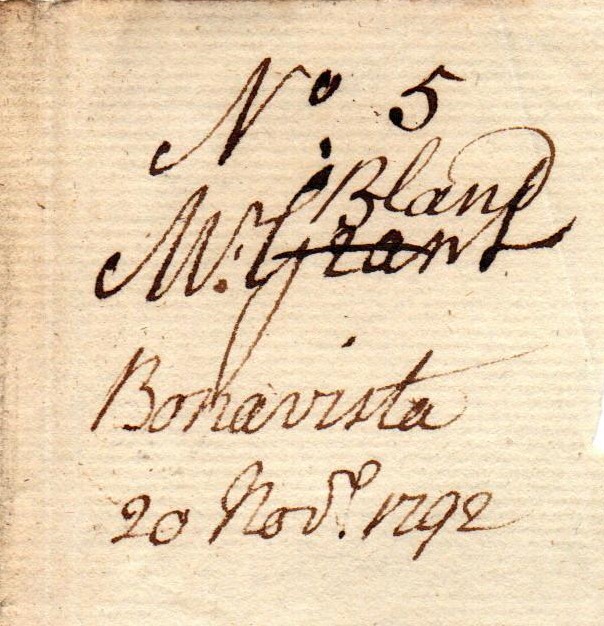 Nº 5
Bland
Mr. Grant
Bonavista
20 Novr. 1792